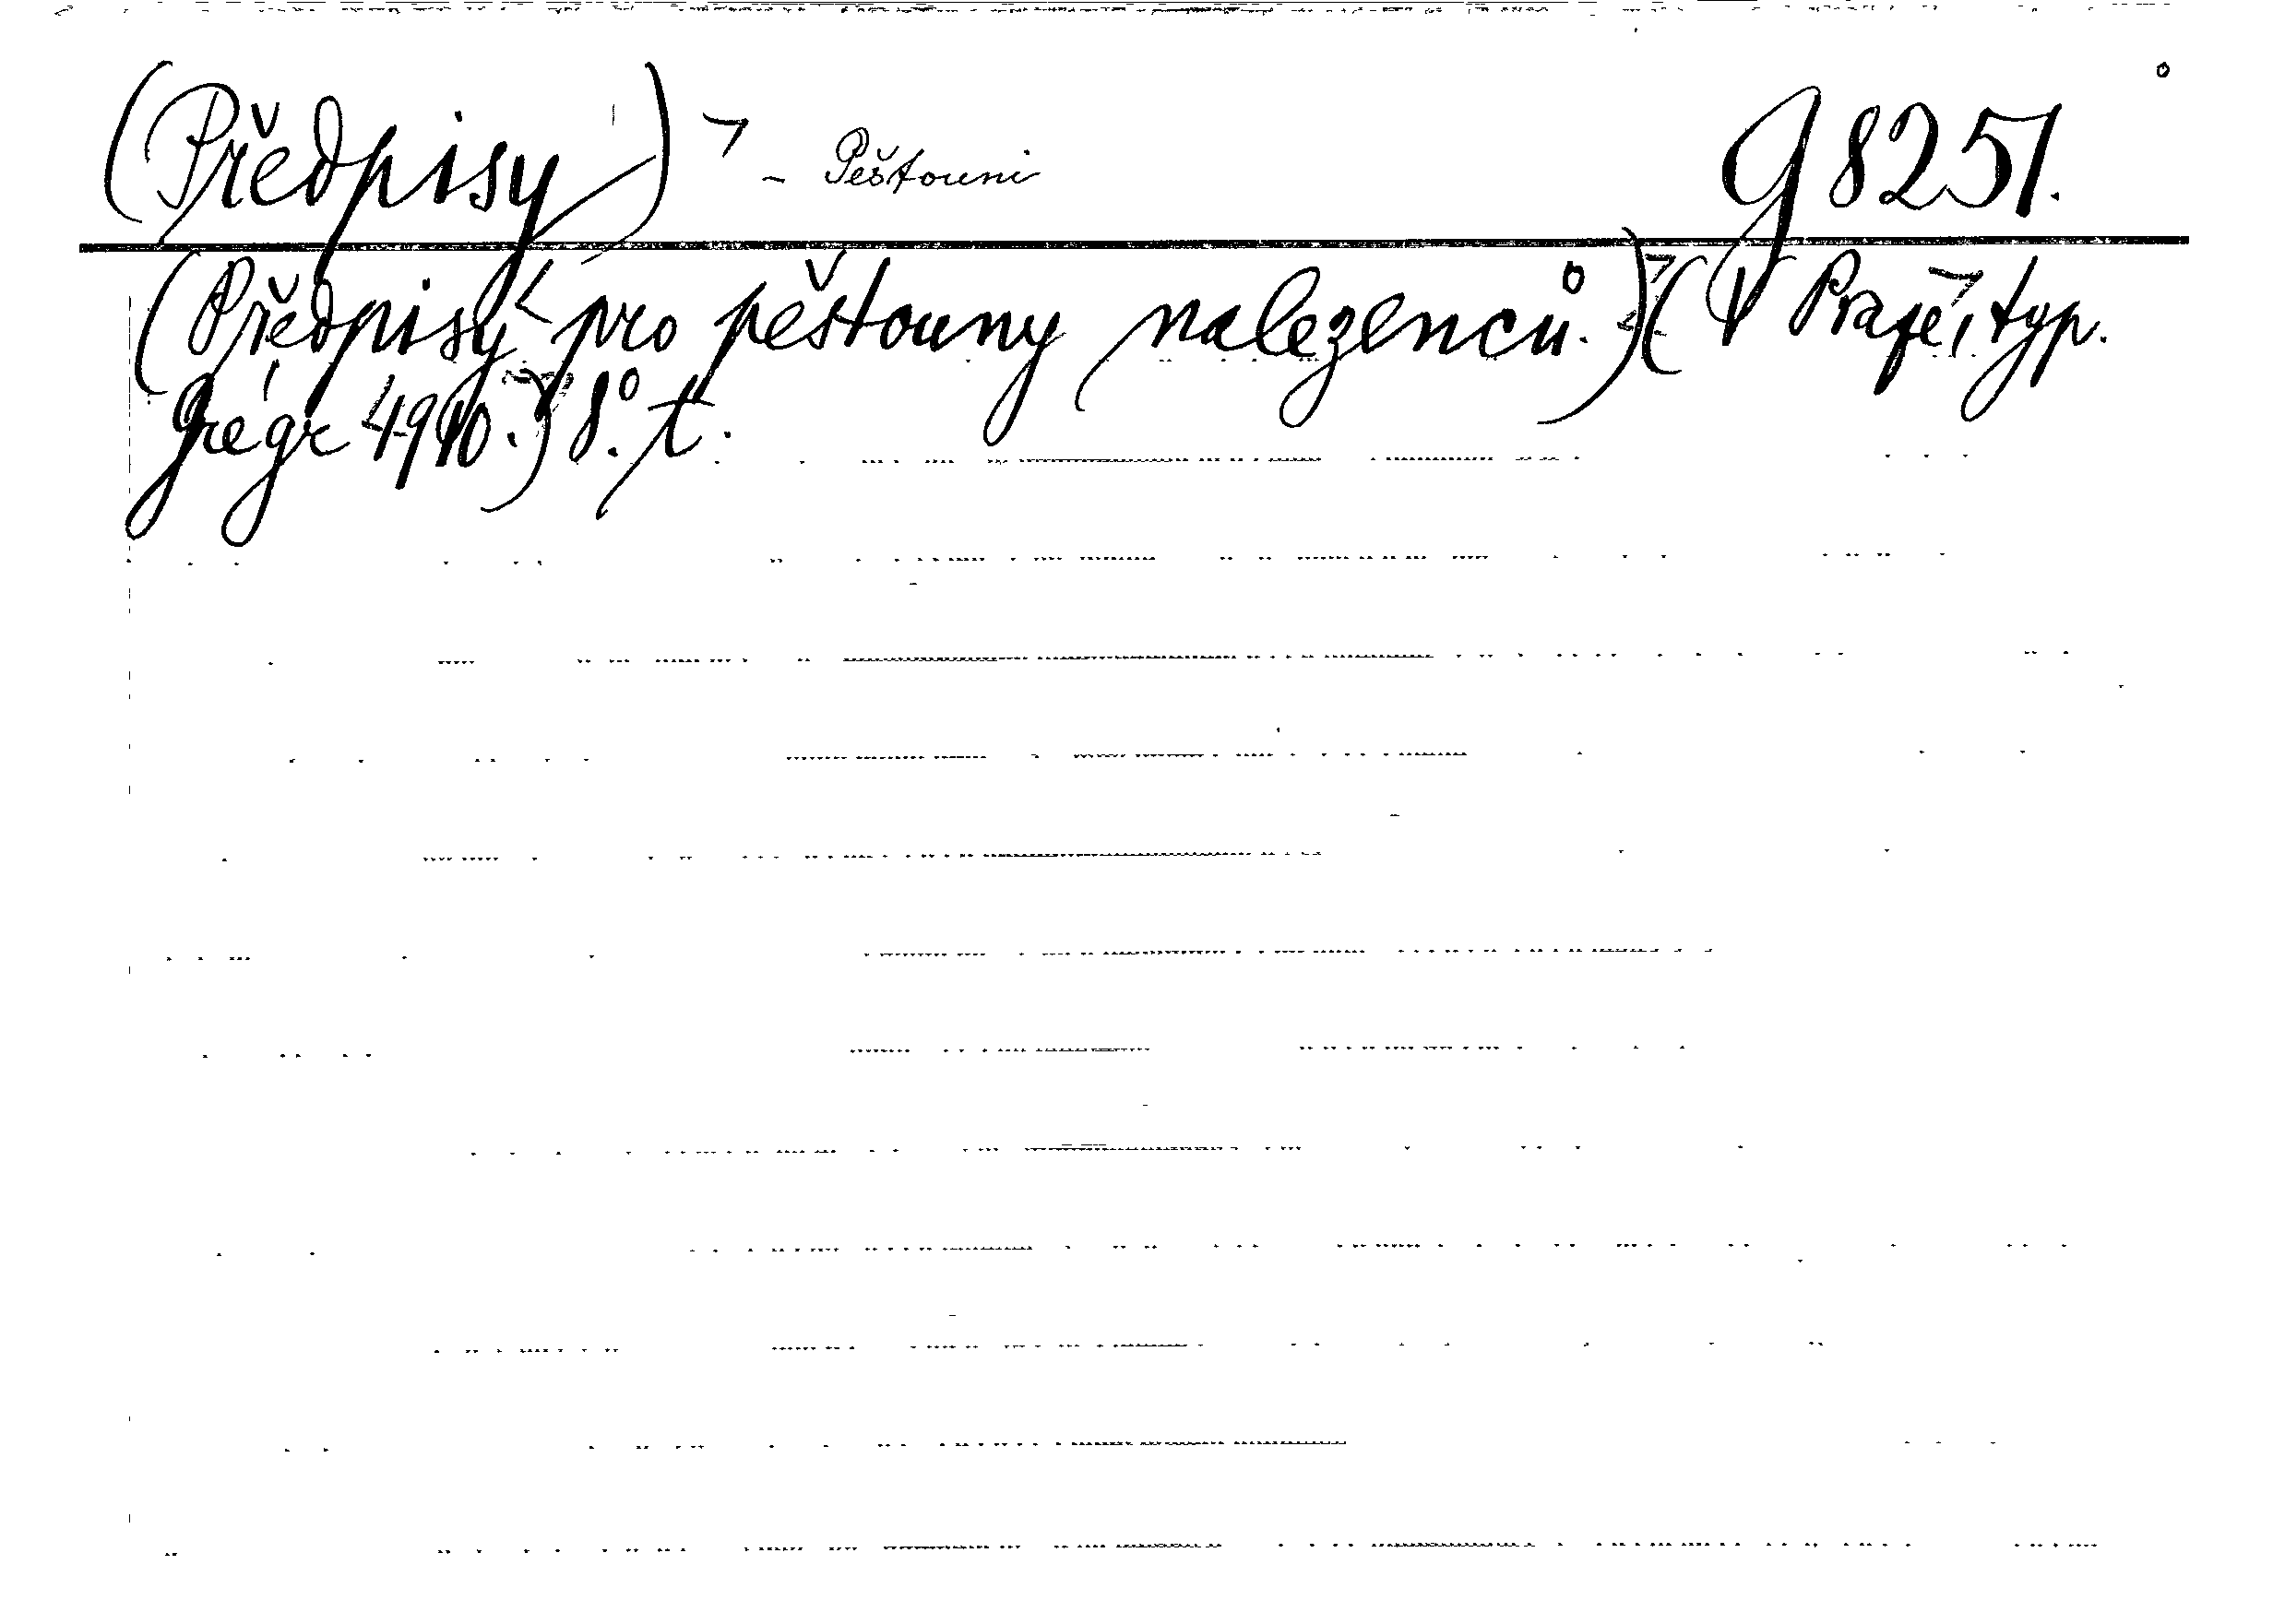 (Předpisy) - Pěstouni g 8251.
(Předpisy pro pěstouny nalezenců.) (V Praze, typ.
Grégr 1910.) 8°. t.